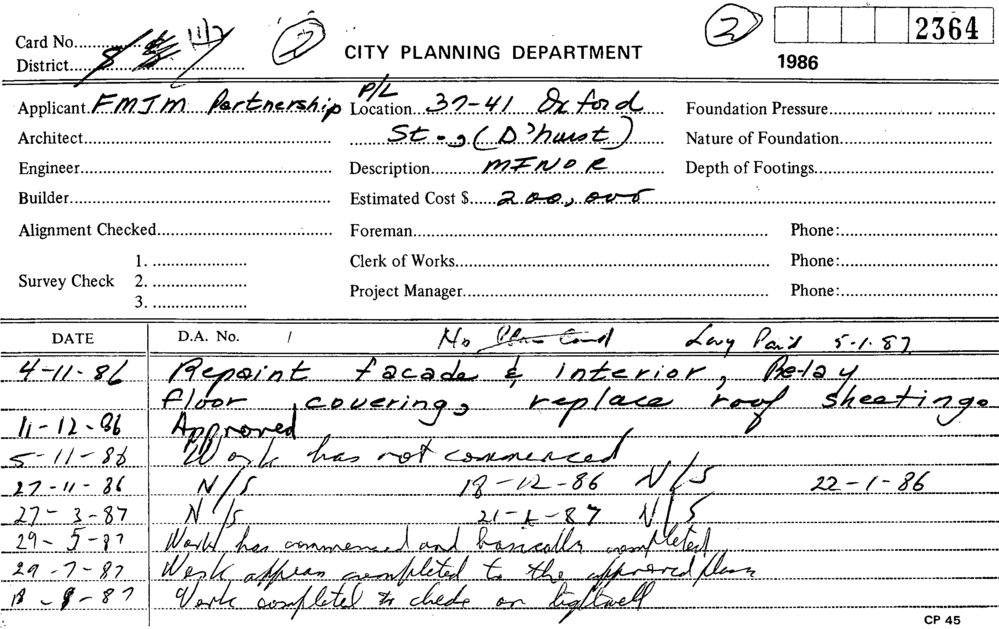 2 2 2364
Card No. 11/7
District
CITY PLANNING DEPARTMENT
1986
Applicant FMJM Partnership P/L Location 37-41 Oxford Foundation Pressure
Architect St., (D'hurst) Nature of Foundation
Engineer Description MINOR Depth of Footings
Builder Estimated Cost $ 200,000
Alignment Checked Foreman Phone:
1. Clerk of Works Phone:
Survey Check 2.
Project Manager Phone:
3.
DATE D.A. No. / No Levy Paid 5.1.87
4-11-86 Repaint facade & interior, Re-lay
floor covering, replace roof sheeting.
11-12-86 Approved
5-11-86 Work has not commenced
27-11-86 N/S 18-12-86 N/S 22-1-86
27-3-87 N/S N/S
29-5-87 Work has commenced and basically completed
29-7-87 Work appears completed to the approved plans
Work completed to check on lightwell
CP 45